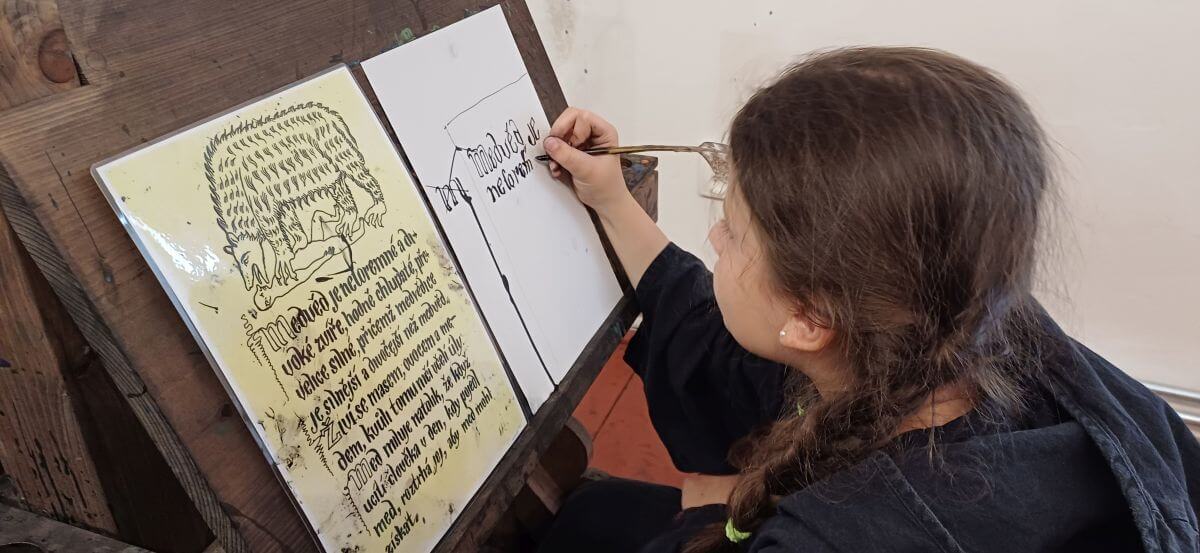 Medvěd je netoremné a di-
voké zvíře, hodně chlupaté, pře-
velice silné, přičemž medvědice
je silnější a doutější než medvěd.
Živí se masem, ovocem a me-
dem, kvůli tomu ničí včelí úly.
Med miluje natolik, že když
ucítí člověka v den, kdy pojedl
med, roztrhá jej, aby med mohl
získat.
Medvěd je